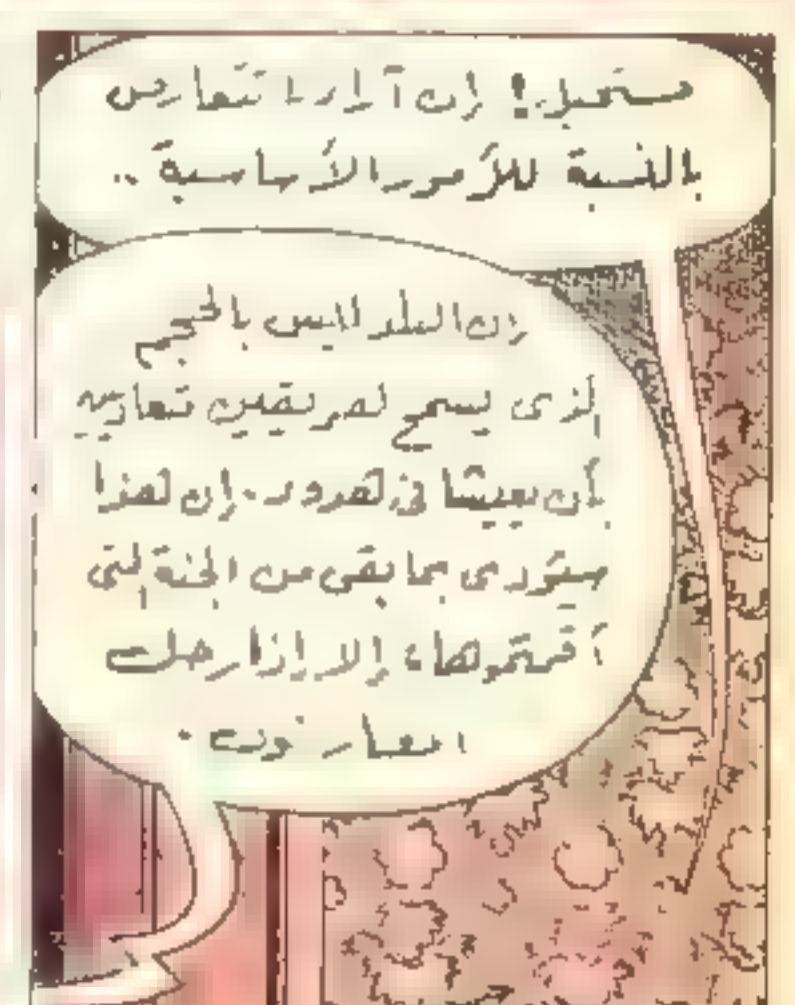 مستحيل! إن آراءنا تتعارض
بالنسبة للأمور الأساسية ..
إن البلد ليس بالحجم
الذى يسمح لفريقين متعاديين
بأن يعيشا فى هدوء. إن هذا
سيؤدى بما بقى من الجنة التى
أقمتموها، إلا إذا رحل
المعارضون.